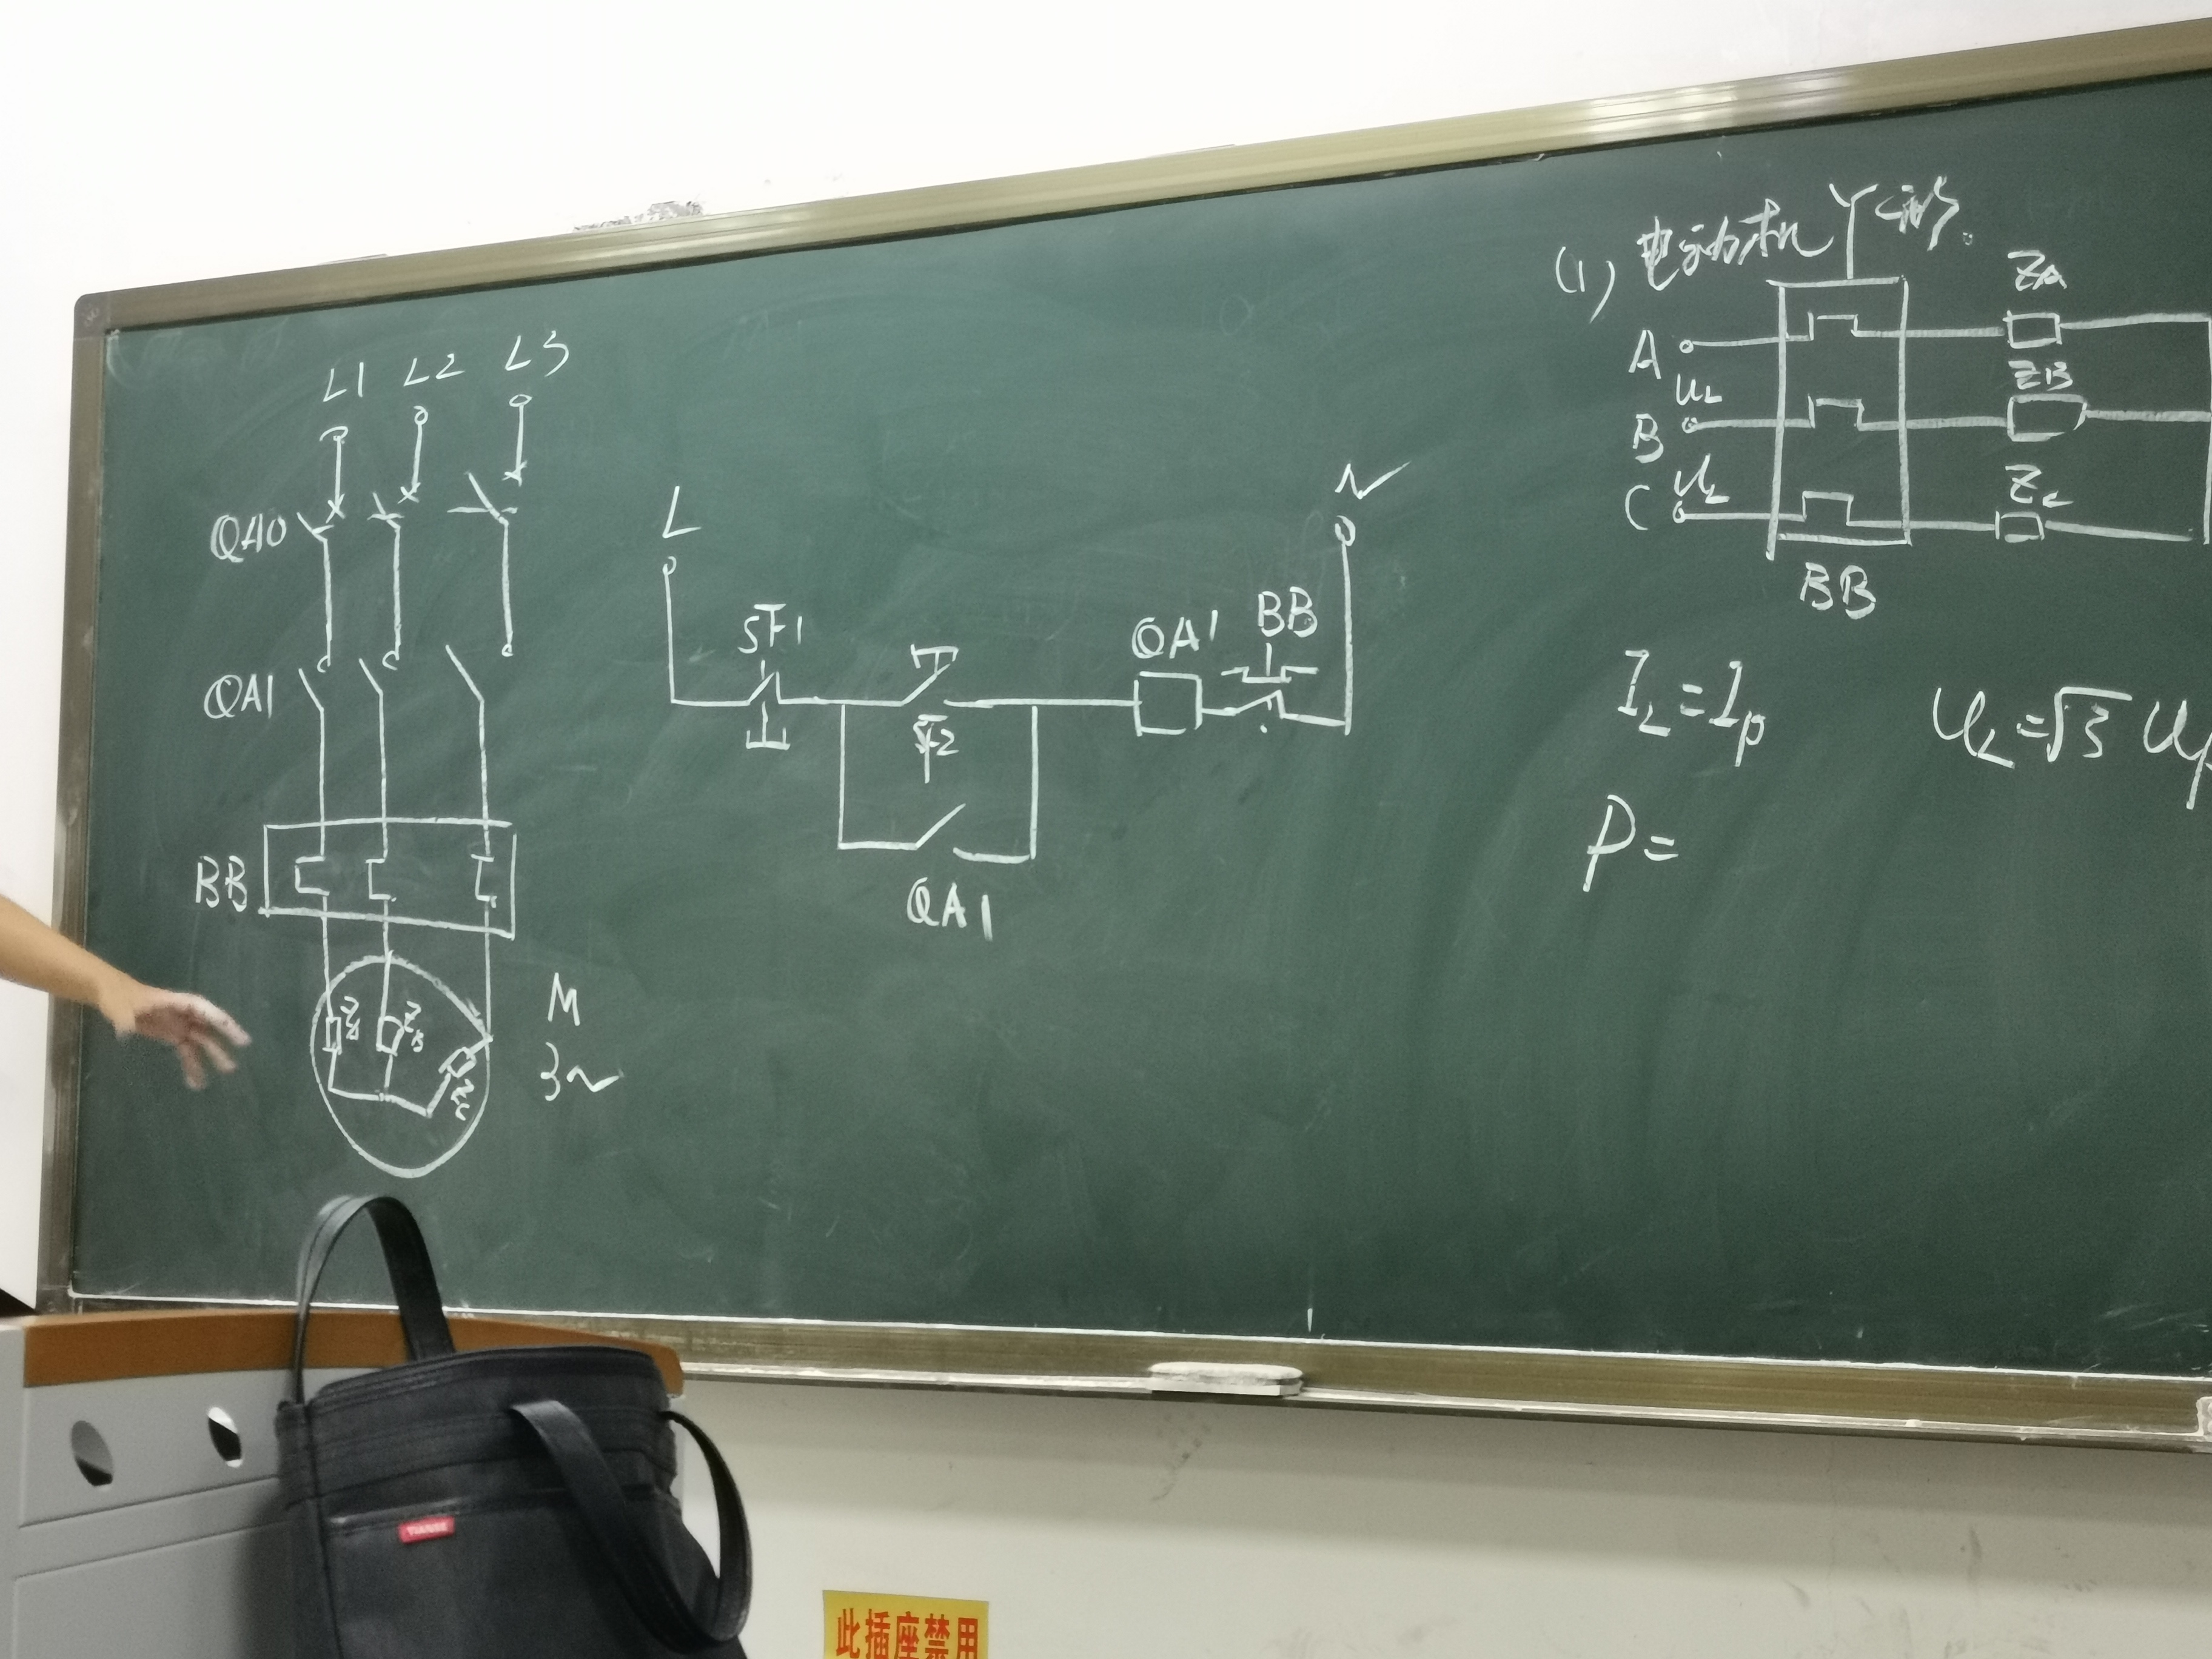 L1 L2 L3
QA0
QA1
BB
ZA ZB ZC
M
3~
L
N
SF1
SF2
QA1
QA1
BB
(1) 电动机Y形
A
UL
B
UL
C
ZA
ZB
ZC
BB
IL=Ip
UL=√3 Up
P=
此插座禁用